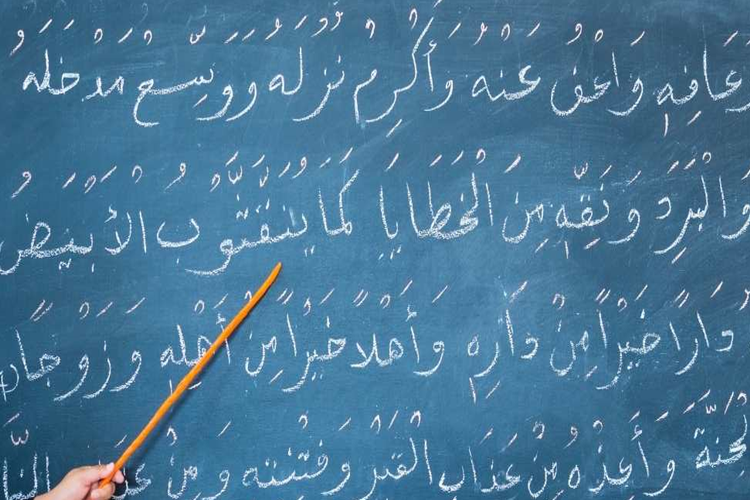 وَعَافِهِ وَاعْفُ عَنْهُ وَأَكْرِمْ نُزُلَهُ وَوَسِّعْ مُدْخَلَهُ
وَالْبَرَدِ وَنَقِّهِ مِنَ الْخَطَايَا كَمَا يُنَقَّى الثَّوْبُ الْأَبْيَضُ
دَارًا خَيْرًا مِنْ دَارِهِ وَأَهْلًا خَيْرًا مِنْ أَهْلِهِ وَزَوْجًا
الْجَنَّةَ وَأَعِذْهُ مِنْ عَذَابِ الْقَبْرِ وَفِتْنَتِهِ وَمِنْ عَذَابِ النَّارِ